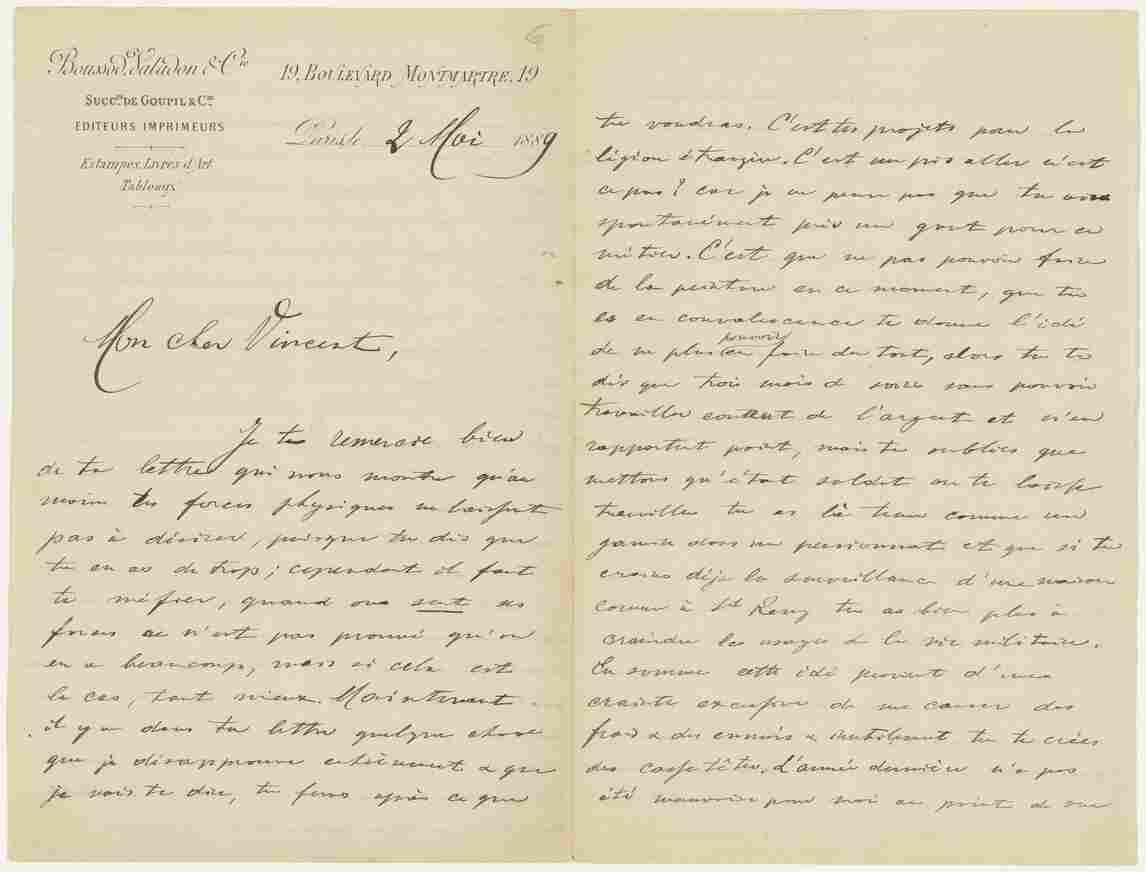 Boussod, Valadon & Cie
Succrs de Goupil & Cie
EDITEURS IMPRIMEURS
Estampes, Livres d'Art
Tableaux
19, BOULEVARD MONTMARTRE, 19
Paris, le 2 Mai 1889
Mon cher Vincent,
Je te remercie bien
de ta lettre qui nous montre qu'au
moins tes forces physiques ne laissent
pas à désirer, puisque tu dis que
tu en as de trop; cependant il faut
te méfier, quand on se sent des
forces ce n'est pas prouvé qu'on
en a beaucoup, mais si cela est
le cas, tant mieux. Maintenant
il y a dans ta lettre quelque chose
que je désapprouve entièrement & que
je vais te dire, tu feras après ce que
tu voudras. C'est tes projets pour la
légion étrangère. C'est un pis aller n'est
ce pas? car je ne pense pas que tu aies
spontanément pris un gout pour ce
métier. C'est que ne pas pouvoir faire
de la peinture en ce moment, que tu
es en convalescence te donne l'idé
pouvoir
de ne plus en faire du tout, alors tu te
dis que trois mois de soins sans pouvoir
travailler coutent de l'argent et n'en
rapportent point, mais tu oublies que
mettons qu'étant soldat on te laisse
travailler tu es là tenu comme un
gamin dans un pensionnat et que si tu
crains déjà la surveillance d'une maison
comme à St Remy tu as bien plus à
craindre les usages de la vie militaire.
En somme cette idé provient d'une
crainte excessive de me causer des
frais & des ennuis & inutilement tu te crées
des casse têtes. L'année dernière n'a pas
été mauvaise pour moi au point de vue